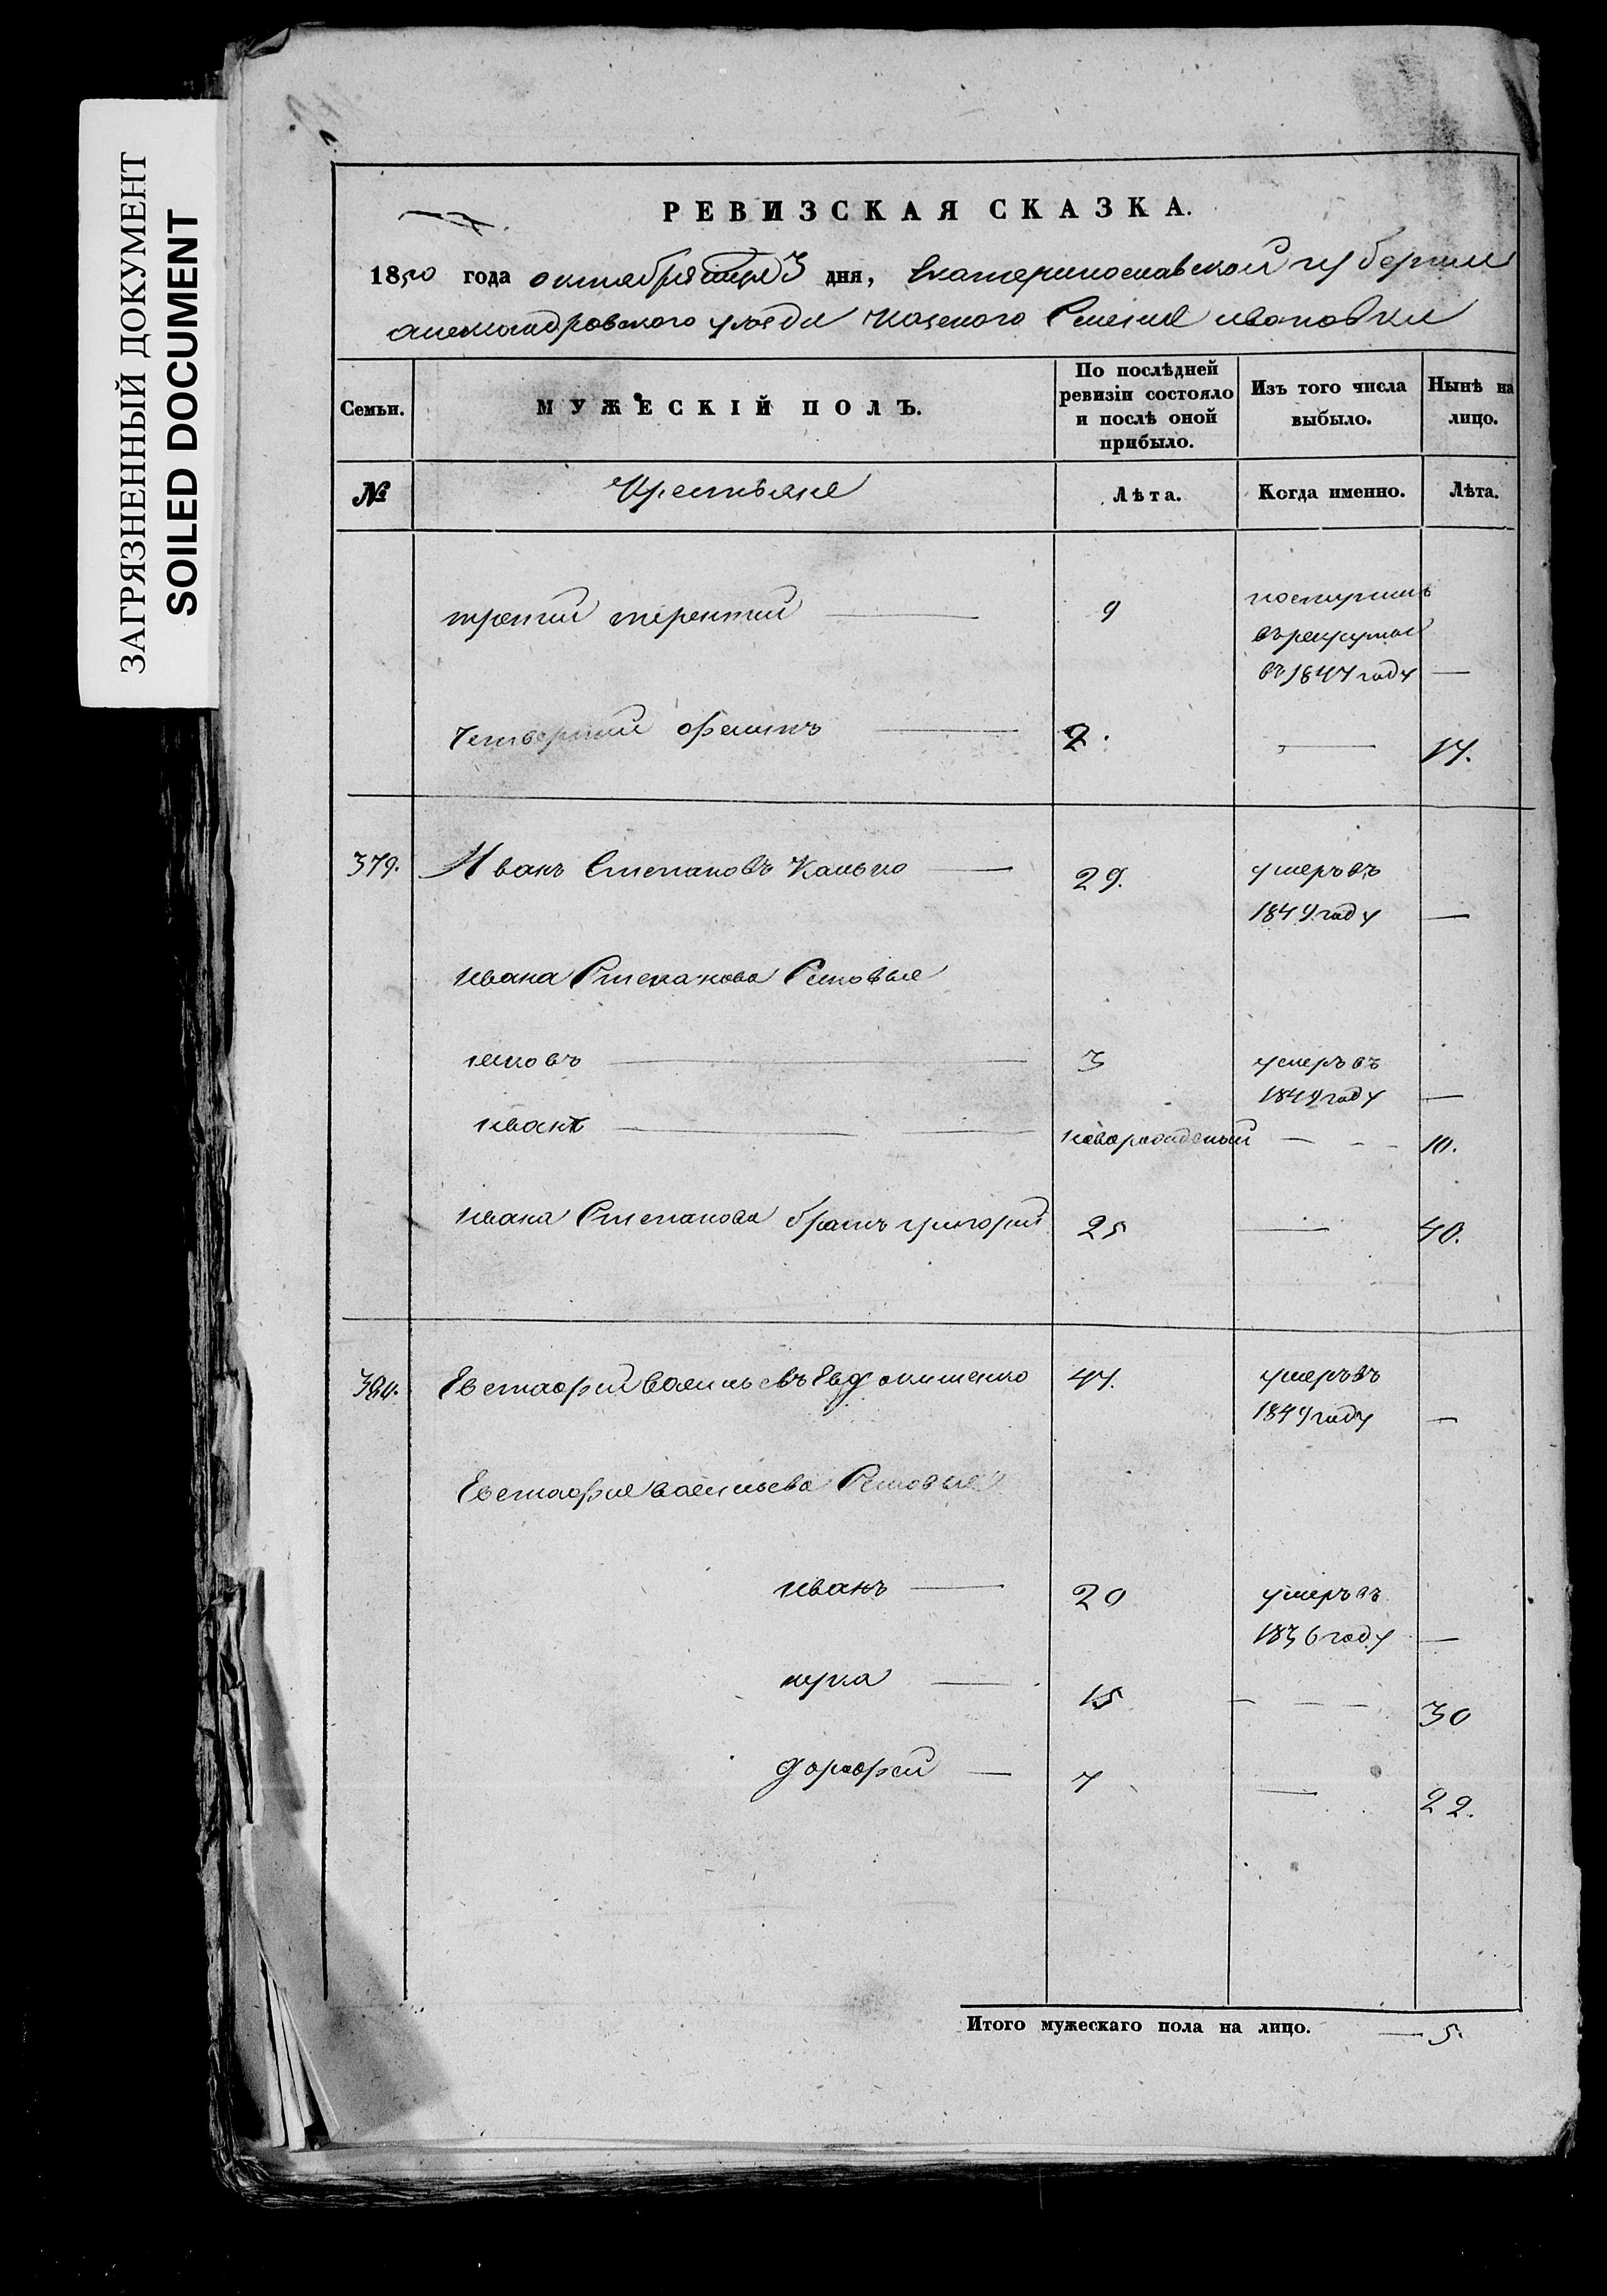 ЗАГРЯЗНЕННЫЙ ДОКУМЕНТ
SOILED DOCUMENT
РЕВИЗСКАЯ СКАЗКА.
1850 года октября 3 дня, Екатеринославской губернии
александровского уезда казеного Селения ивановки
Семьи.
МУЖЕСКІЙ ПОЛЪ.
По послѣдней
ревизіи состояло
и послѣ оной
прибыло.
Изъ того числа
выбыло.
Нынѣ на
лицо.
№
Крестьяне
Лѣта.
Когда именно.
Лѣта.
третий терентий 9 поступилъ
въ рекруты
въ 1847 году —
четвертий 2. — 17.
379. Иванъ Степановъ Калько 29. умеръ въ
1849 году —
ивана Степанова Сыновья
яковъ 3 умеръ въ
1849 году —
иванъ новорожденый — 10.
ивана Степанова братъ григорий 25 — 40.
380. Евстафий васильевъ Евдокименко 47. умеръ въ
1849 году —
Евстафия васильева Сыновья
иванъ 20 умеръ въ
1836 году —
15 — 30
дорофей 7 — 22.
Итого мужескаго пола на лицо. — 5.